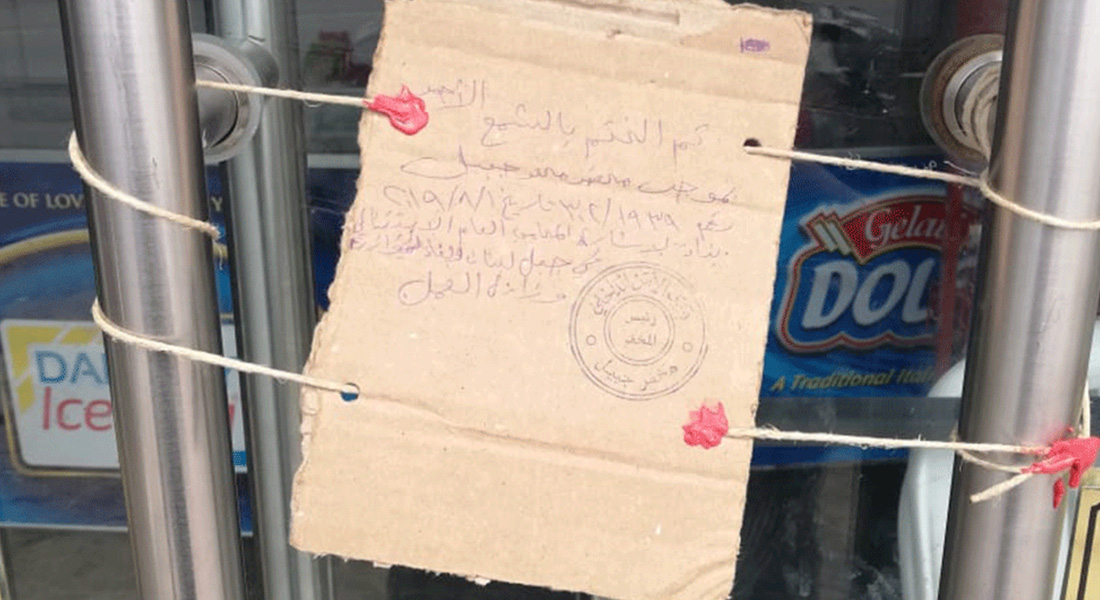 تم الختم بالشمع الأحمر
بموجب محضر مخفر جبيل
رقم ٣٠٢/١٩٣٩ تاريخ ٢٠١٩/٨/١
بناء لإشارة المحامي العام الاستئنافي
في جبل لبنان
وزارة العمل
قوى الأمن الداخلي
رئيس
المخفر
مخفر جبيل
E OF LOV
DA
Ice
Gela
DOL
A Traditional Ital